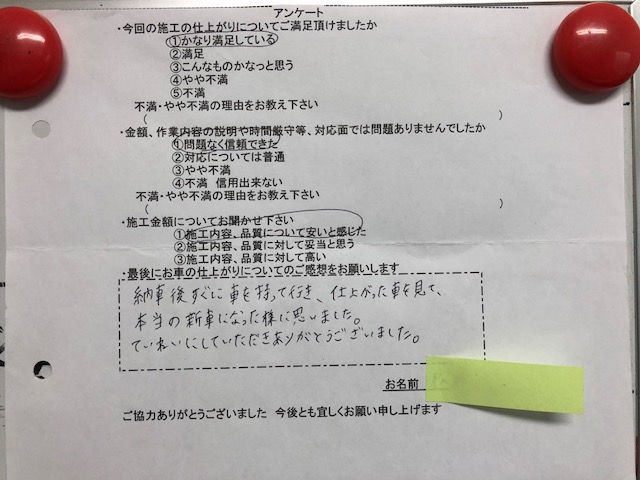 アンケート
・今回の施工の仕上がりについてご満足頂けましたか
①かなり満足している
②満足
③こんなものかなっと思う
④やや不満
⑤不満
不満・やや不満の理由をお教え下さい
( )
・金額、作業内容の説明や時間厳守等、対応面では問題ありませんでしたか
①問題なく信頼できた
②対応については普通
③やや不満
④不満 信用出来ない
不満・やや不満の理由をお教え下さい
( )
・施工金額についてお聞かせ下さい
①施工内容、品質について安いと感じた
②施工内容、品質に対して妥当と思う
③施工内容、品質に対して高い
・最後にお車の仕上がりについてのご感想をお願いします
納車後すぐに車を持って行き、仕上がった車を見て、
本当の新車になった様に思いました。
ていねいにしていただきありがとうございました。
お名前
ご協力ありがとうございました 今後とも宜しくお願い申し上げます